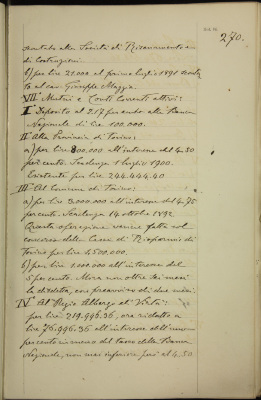 270.
scontata alla Società di Risanamento e
di Costruzioni.
b) per lire 21.000 al primo luglio 1891 sconta
to al cav. Giuseppe Maggia.
VII Mutui e Conti Correnti attivi:
I Deposito al 2.17 presso alla Banca
Nazionale di Lire 100.000.
II Alla Provincia di Torino:
a) per lire 800.000 all'interesse del 4.50
per cento. Scadenza 1 luglio 1900.
Esistente per lire 244.444.40
III Al Comune di Torino:
a) per lire 3.000.000 all'interesse del 4.75
per cento. Scadenza 14 ottobre 1892
Questa operazione venne fatta col
concorso della Cassa di Risparmio di
Torino per lire 1.500.000.
b) per lire 1.000.000 all'interesse del
5 per cento. Mora non oltre sei mesi
la disdetta, con preavviso di due mesi.
IV Al Regio Albergo di Virtù:
per lire 219.996.36, ora ridotto a
lire 76.996.36 all'interesse dell'uno
per cento in meno del tasso della Banca
Nazionale, non mai inferiore però al 4.50